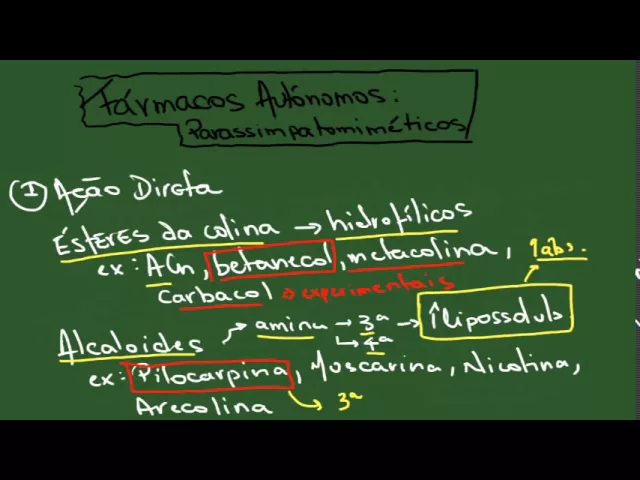 Fármacos Autónomos:
Parassimpatomiméticos
① Ação Direta
Ésteres da colina → hidrofílicos
ex: ACn, betanecol, metacolina, ↑abs.
Carbacol → experimentais
Alcaloides → amina → 3ª → ↑lipossolub
↳ 4ª
ex: Pilocarpina, Muscarina, Nicotina,
Arecolina → 3ª